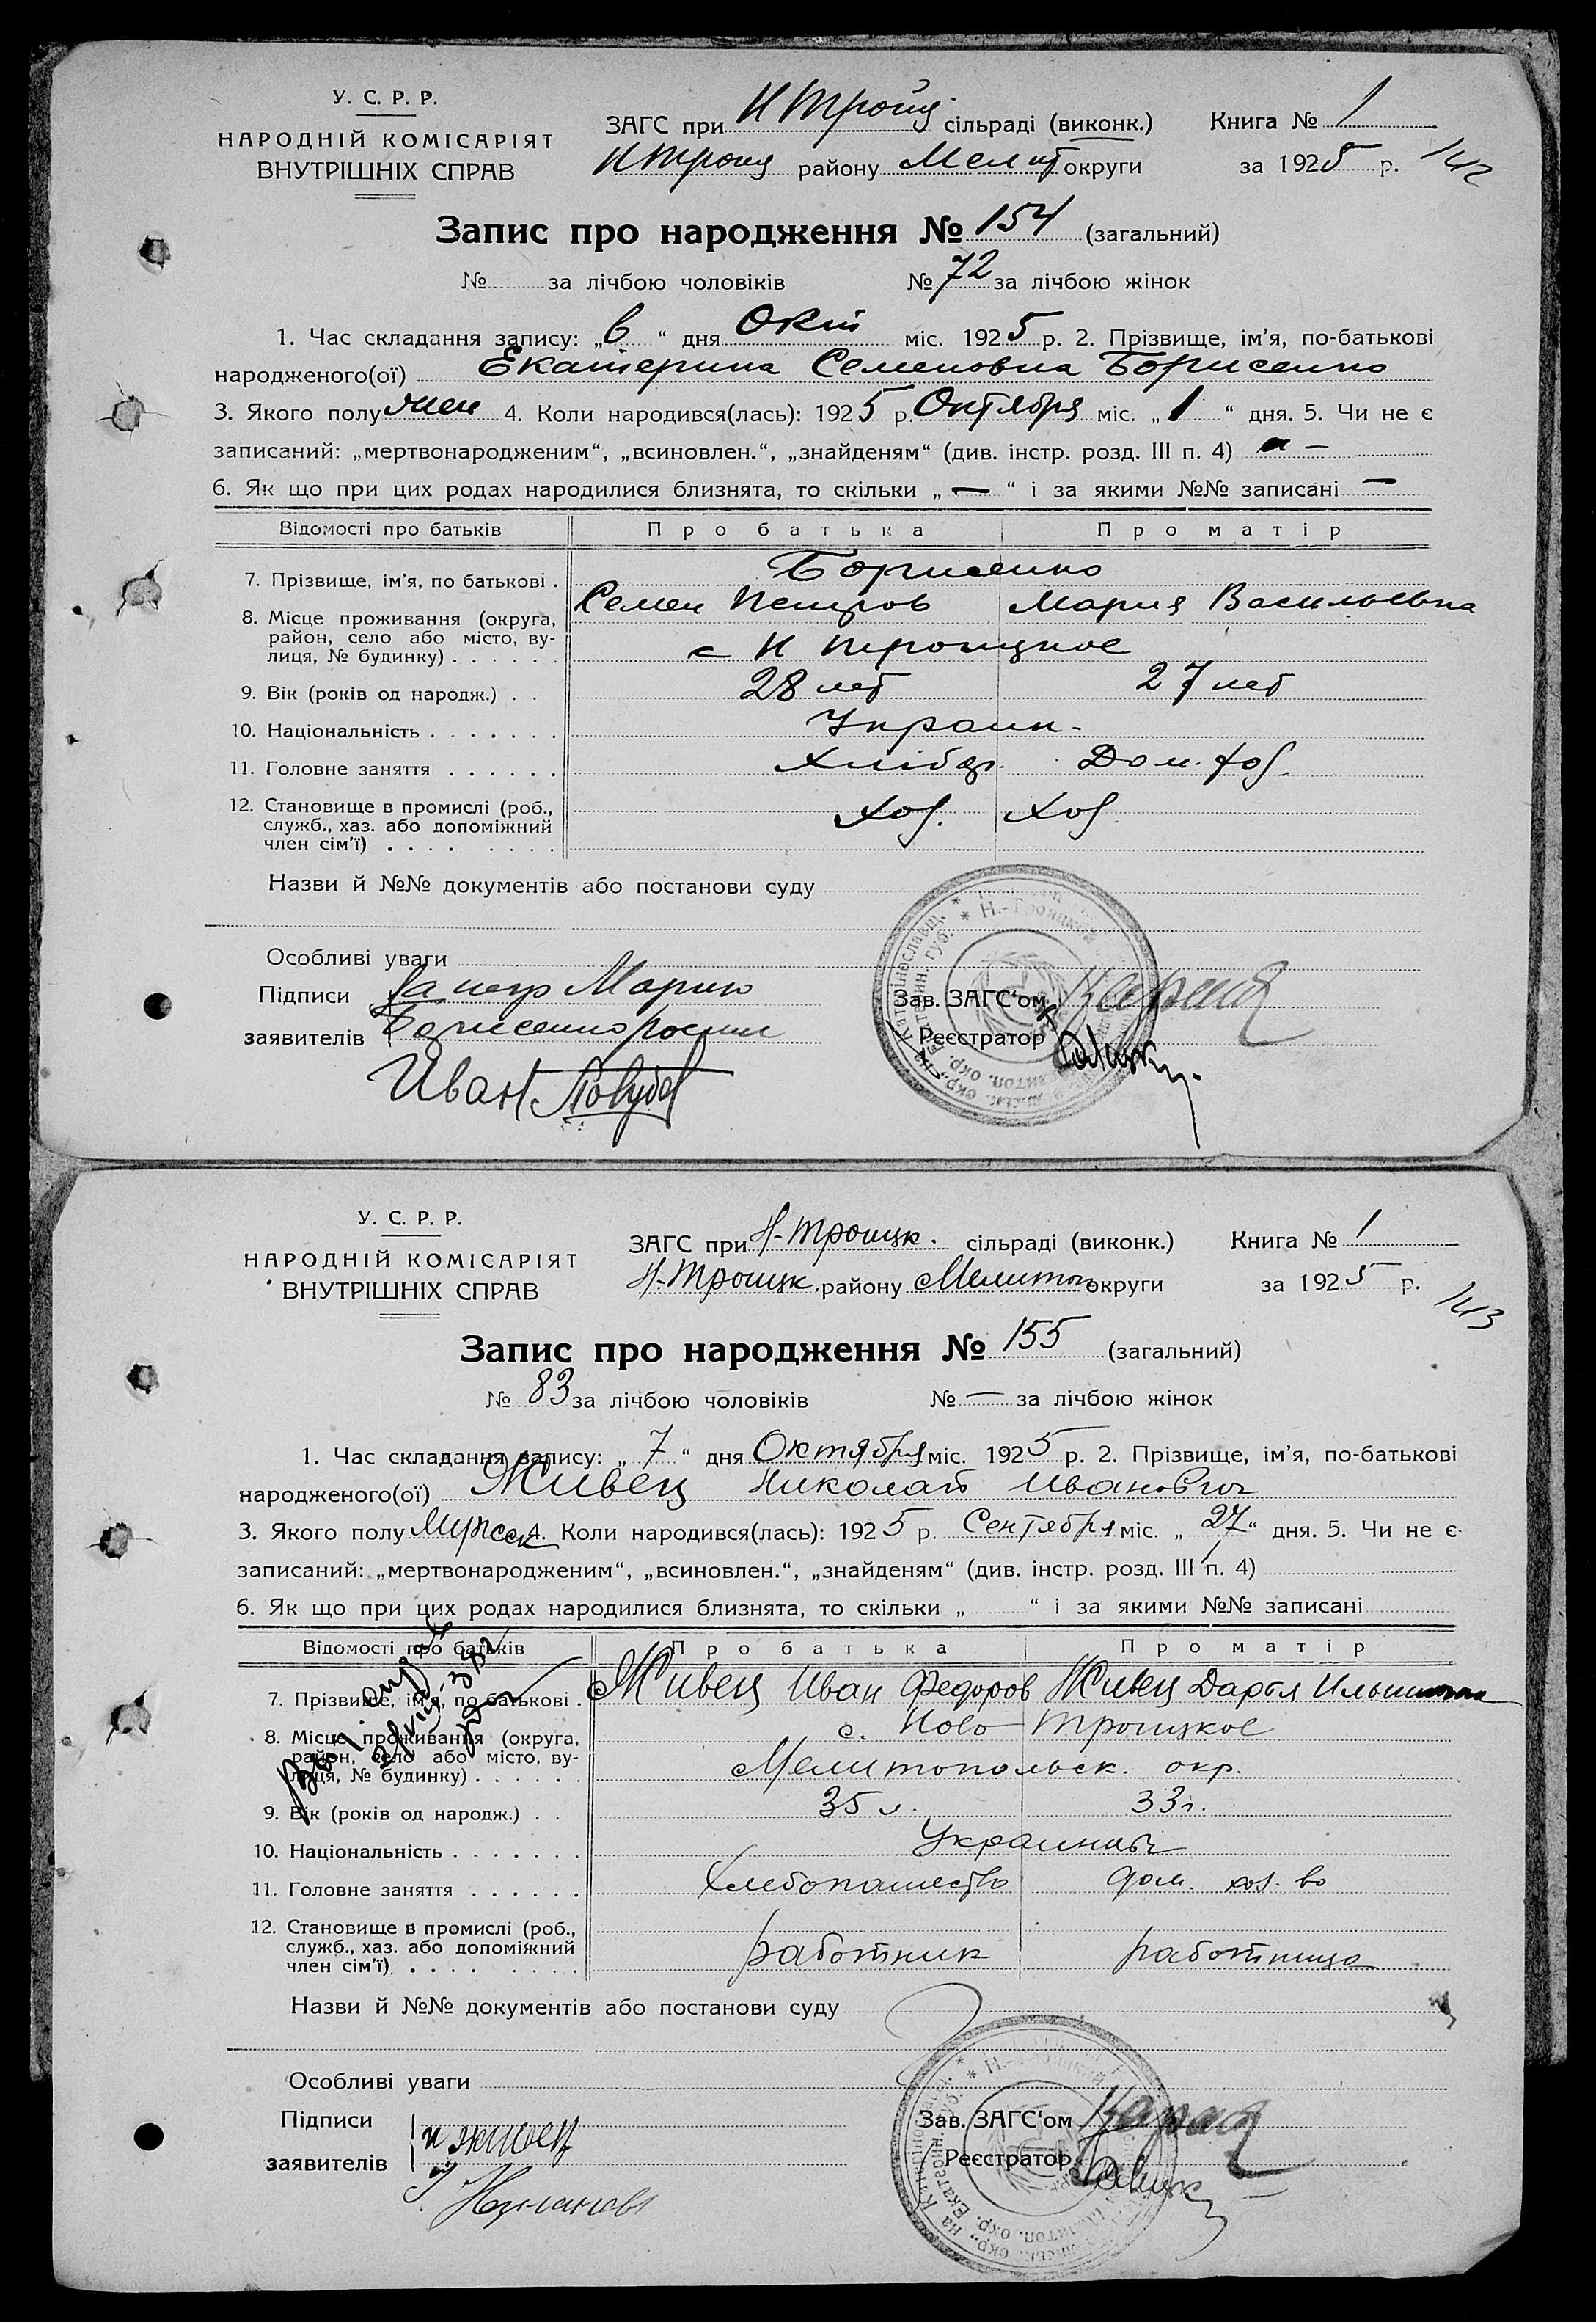 У. С. Р. Р.
НАРОДНІЙ КОМІСАРІЯТ
ВНУТРІШНІХ СПРАВ
ЗАГС при Н Троиц. сільраді (виконк.) Книга № 1
Н Троиц району Мелит округи за 1925 р. 142
Запис про народження № 154 (загальний)
№ за лічбою чоловіків № 72 за лічбою жінок
1. Час складання запису: „6“ дня Окт міс. 1925 р. 2. Прізвище, ім'я, по-батькові
народженого(ої) Екатерина Семеновна Борисенко
3. Якого полу жен 4. Коли народився(лась): 1925 р. Октября міс. „1“ дня. 5. Чи не є
записаний: „мертвонародженим“, „всиновлен.“, „знайденям“ (див. інстр. розд. III п. 4) —
6. Як що при цих родах народилися близнята, то скільки „—“ і за якими №№ записані —
Відомості про батьків Про батька Про матір
7. Прізвище, ім'я, по батькові . Борисенко
Семен Петров Мария Васильевна
8. Місце проживання (округа,
район, село або місто, ву-
лиця, № будинку) . . . . . . с Н Троицкое
9. Вік (років од народж.) . . 28 лет 27 лет
10. Національність . . . . . . . Украин-
11. Головне заняття . . . . . . Хлібор. Дом. хоз.
12. Становище в промислі (роб.,
служб., хаз. або допоміжний
член сім'ї) . . . . . . . . Хоз. Хоз
Назви й №№ документів або постанови суду
Особливі уваги
Підписи За негр Марию
заявителів Борисенко росп
Иван
Зав. ЗАГС'ом
Реєстратор
У. С. Р. Р.
НАРОДНІЙ КОМІСАРІЯТ
ВНУТРІШНІХ СПРАВ
ЗАГС при Н-Троицк. сільраді (виконк.) Книга № 1
Н-Троицк. району Мелитоп округи за 1925 р. 143
Запис про народження № 155 (загальний)
№ 83 за лічбою чоловіків № — за лічбою жінок
1. Час складання запису: „7“ дня Октября міс. 1925 р. 2. Прізвище, ім'я, по-батькові
народженого(ої) Живец Николай Иванович
3. Якого полу Мужск 4. Коли народився(лась): 1925 р. Сентября міс. „27“ дня. 5. Чи не є
записаний: „мертвонародженим“, „всиновлен.“, „знайденям“ (див. інстр. розд. III п. 4)
6. Як що при цих родах народилися близнята, то скільки „ “ і за якими №№ записані
Відомості про батьків Про батька Про матір
7. Прізвище, ім'я, по батькові . Живец Иван Федоров Живец Дарья Ильинична
8. Місце проживання (округа, с. Ново Троицкое
район, село або місто, ву-
лиця, № будинку) . . . . . . Мелитопольск. окр.
9. Вік (років од народж.) . . 35 л. 33 г.
10. Національність . . . . . . . Украинцы
11. Головне заняття . . . . . . Хлебопашество дом. хоз-во
12. Становище в промислі (роб.,
служб., хаз. або допоміжний
член сім'ї) . . . . . . . . работник работница
Назви й №№ документів або постанови суду
Особливі уваги
Підписи и живец
заявителів
Зав. ЗАГС'ом
Реєстратор